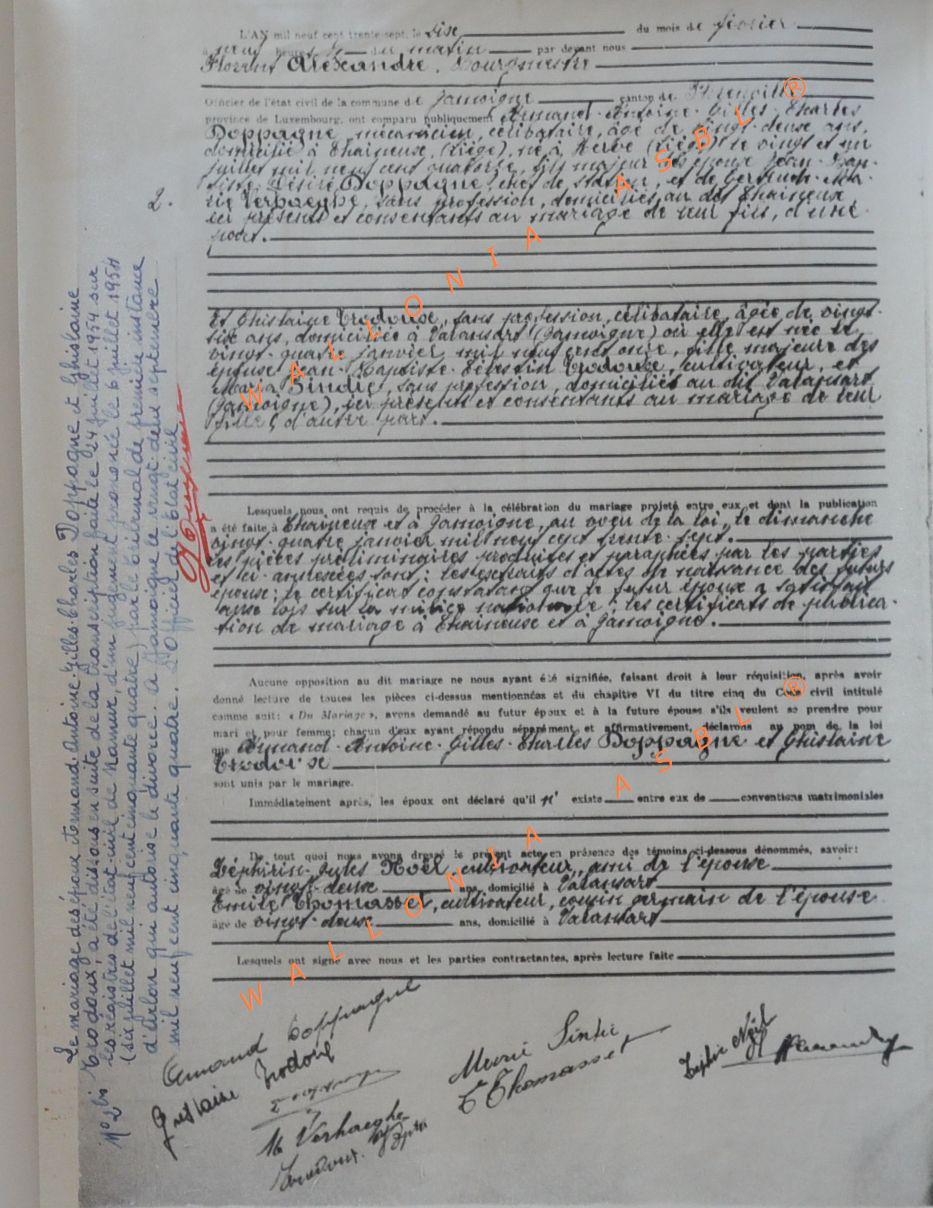 L'AN mil neuf cent trente-sept, le six du mois de février
à neuf heures du matin par devant nous
Florent Alexandre, Bourgmestre
Officier de l'état civil de la commune de Jamoigne canton de
province de Luxembourg, ont comparu publiquement Armand-Antoine-Gilles-Charles
Doppagne, mécanicien, célibataire, âgé de vingt-deux ans,
domicilié à Thaineux, (Liège), né à Herve (Liège) le vingt et un
juillet mil neuf cent quatorze, fils majeur des époux Jean-Bap-
tiste Désiré Doppagne, chef de station, et de Gertrude-Ma-
rie Verhaeghe, sans profession, domiciliés au dit Thaineux,
ici présents et consentants au mariage de leur fils, d'une
part.
2.
Et Ghislaine Trodoux, sans profession, célibataire, âgée de vingt-
six ans, domiciliée à Valansart (Jamoigne) où elle est née le
vingt-quatre janvier mil neuf cent onze, fille majeure des
époux Jean-Baptiste-Célestin Trodoux, cultivateur, et
Maria Sindic, sans profession, domiciliés au dit Valansart
(Jamoigne), ici présents et consentants au mariage de leur
fille, d'autre part.
Lesquels nous ont requis de procéder à la célébration du mariage projeté entre eux et dont la publication
a été faite à Thaineux et à Jamoigne, au voeu de la loi, le dimanche
vingt-quatre janvier mil neuf cent trente-sept.
Les pièces préliminaires produites et paraphées par les parties
et ci-annexées sont: les extraits d'actes de naissance des futurs
époux; le certificat constatant que le futur époux a satisfait
aux lois sur la milice nationale; les certificats de publica-
tion de mariage à Thaineux et à Jamoigne.
Aucune opposition au dit mariage ne nous ayant été signifiée, faisant droit à leur réquisition, après avoir
donné lecture de toutes les pièces ci-dessus mentionnées et du chapitre VI du titre cinq du Code civil intitulé
comme suit: « Du Mariage », avons demandé au futur époux et à la future épouse s'ils veulent se prendre pour
mari et pour femme; chacun d'eux ayant répondu séparément et affirmativement, déclarons au nom de la loi
que Armand-Antoine-Gilles-Charles Doppagne et Ghislaine
Trodoux
sont unis par le mariage.
Immédiatement après, les époux ont déclaré qu'il n' existe entre eux de conventions matrimoniales
De tout quoi nous avons dressé le présent acte en présence des témoins ci-dessous dénommés, savoir:
Zéphirin-Jules Noël, cultivateur, ami de l'épouse
âgé de vingt-deux ans, domicilié à Valansart
Emile Thomasset, cultivateur, cousin germain de l'épouse
âgé de vingt-deux ans, domicilié à Valansart
Lesquels ont signé avec nous et les parties contractantes, après lecture faite
Armand Doppagne
Ghislaine Trodoux
M Verhaeghe
Trodoux
Marie Sindic
E Thomasset
Zéphir Noël
N° 2 bis Le mariage des époux Armand-Antoine-Gilles-Charles Doppagne et Ghislaine
Trodoux, a été dissous en suite de la transcription faite le 24 juillet 1954 sur
les registres de l'état-civil de Namur, d'un jugement prononcé le 6 juillet 1954
(six juillet mil neuf cent cinquante quatre) par le tribunal de première instance
d'Arlon qui autorise le divorce. A Jamoigne le vingt deux septembre
mil neuf cent cinquante quatre. L'officier de l'état civil
WALLONIA ASBL ®
WALLONIA ASBL ®